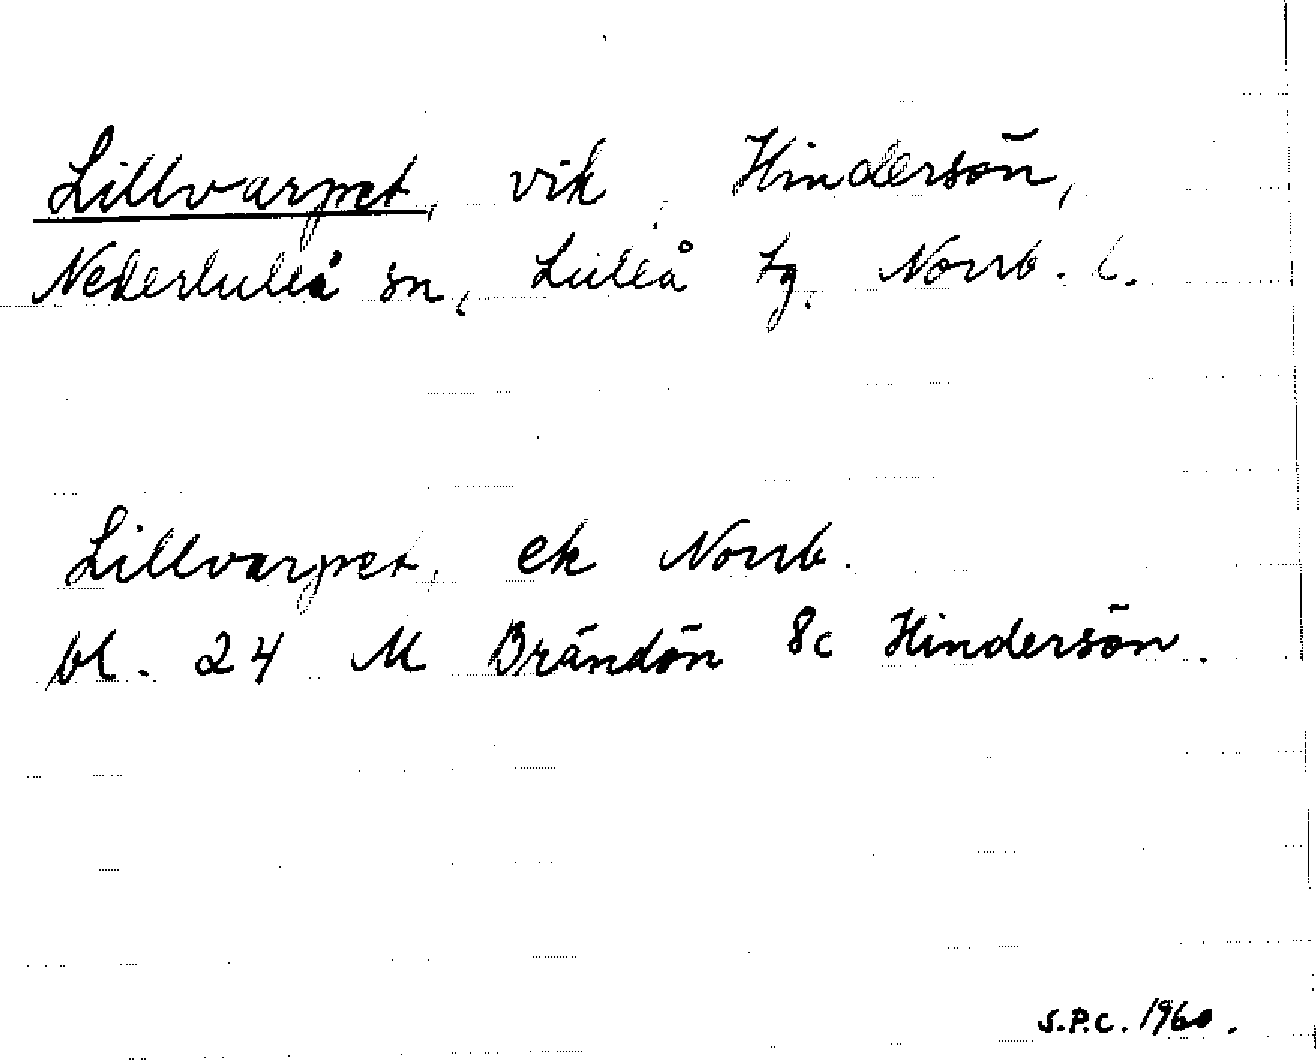 Lillvarpet, vik, Hindersön,
Nederluleå sn, Luleå tg, Norrb. l.
Lillvarpet, ek Norrb.
bl. 24 M Brändön 8c Hindersön.
S.P.C. 1960.